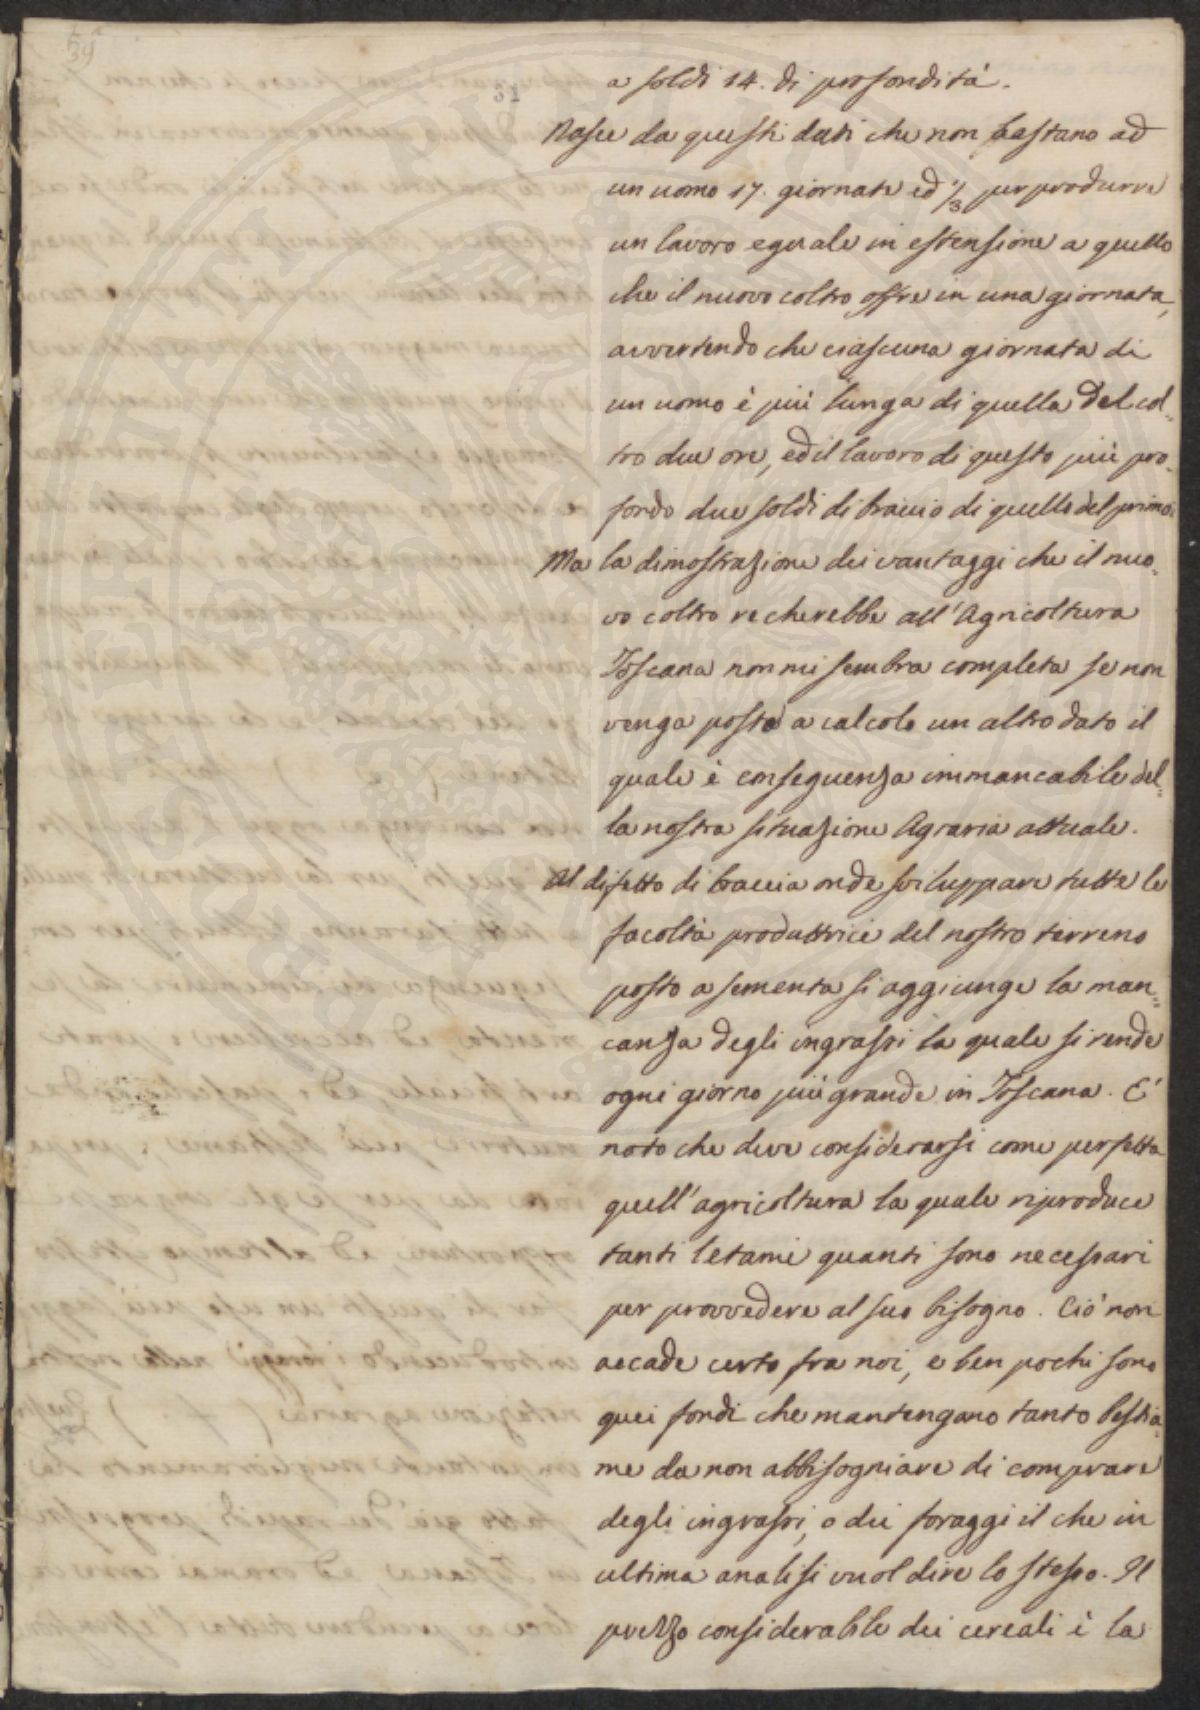 39
31
a soldi 14. di profondità.
Nasce da questi dati che non bastano ad
un uomo 17. giornate ed 1/3 per produrre
un lavoro eguale in estensione a quello
che il nuovo coltro offre in una giornata,
avvertendo che ciascuna giornata di
un uomo è più lunga di quella del col=
tro due ore, ed il lavoro di questo più pro=
fondo due soldi di braccio di quello del primo.
Ma la dimostrazione dei vantaggi che il nuo=
vo coltro recherebbe all'Agricoltura
Toscana non mi sembra completa se non
venga posto a calcolo un altro dato il
quale è conseguenza immancabile del=
la nostra situazione Agraria attuale.
Al difetto di braccia onde sviluppare tutte le
facoltà produttrici del nostro terreno
posto a sementa si aggiunge la man=
canza degli ingrassi la quale si rende
ogni giorno più grande in Toscana. E'
noto che deve considerarsi come perfetta
quell'agricoltura la quale riproduce
tanti letami quanti sono necessari
per provvedere al suo bisogno. Ciò non
accade certo fra noi, e ben pochi sono
quei fondi che mantengano tanto bestia=
me da non abbisogniare di comprare
degli ingrassi, o dei foraggi il che in
ultima analisi vuol dire lo stesso. Il
prezzo considerabile dei cereali è la